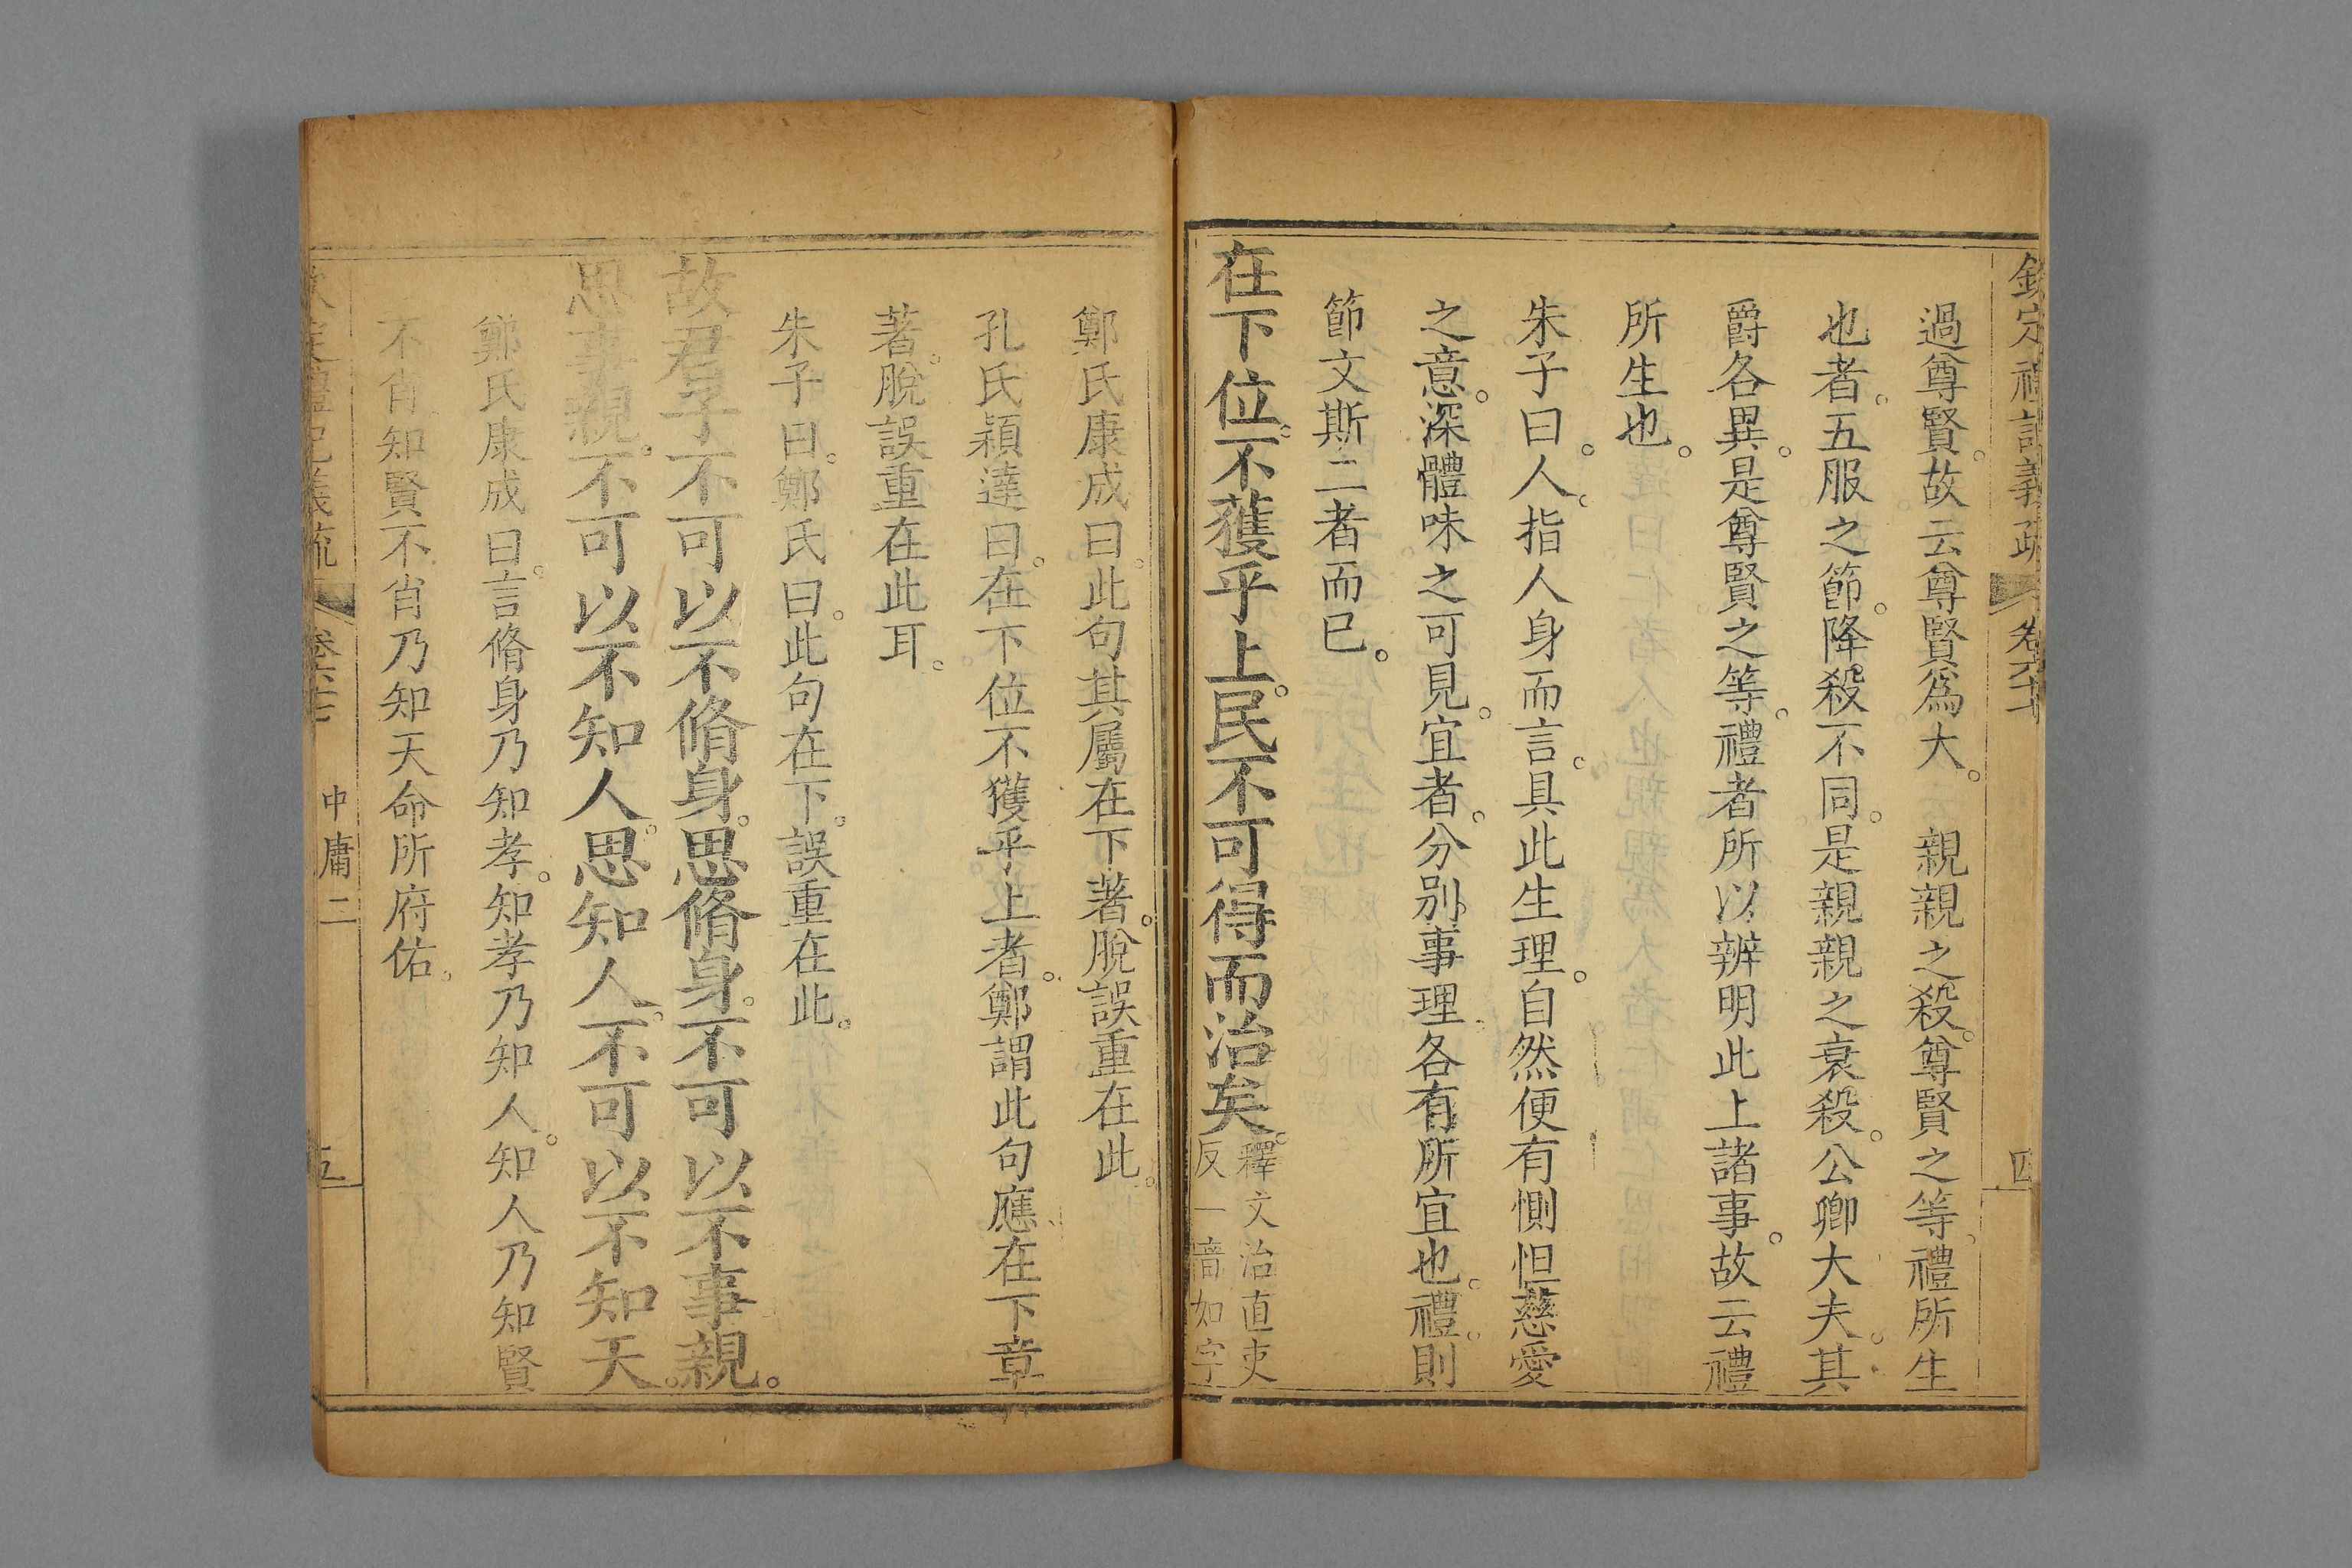 過尊賢。故云尊賢為大。　親親之殺。尊賢之等。禮所生
也者。五服之節。降殺不同。是親親之衰殺。公卿大夫。其
爵各異。是尊賢之等。禮者所以辨明此上諸事。故云禮
所生也。
朱子曰。人。指人身而言。具此生理。自然便有惻怛慈愛
之意。深體味之可見。宜者。分別事理。各有所宜也。禮。則
節文斯二者而已。
在下位。不獲乎上。民不可得而治矣。
釋文治直吏
反一音如字
鄭氏康成曰。此句其屬在下。著脫誤重在此。
孔氏穎達曰。在下位不獲乎上者。鄭謂此句應在下章
著。脫誤重在此耳。
朱子曰。鄭氏曰。此句在下。誤重在此。
故君子不可以不脩身。思脩身。不可以不事親。
思事親。不可以不知人。思知人。不可以不知天。
鄭氏康成曰。言脩身乃知孝。知孝乃知人。知人乃知賢
不肖。知賢不肖乃知天命所府佑。
中庸二
五